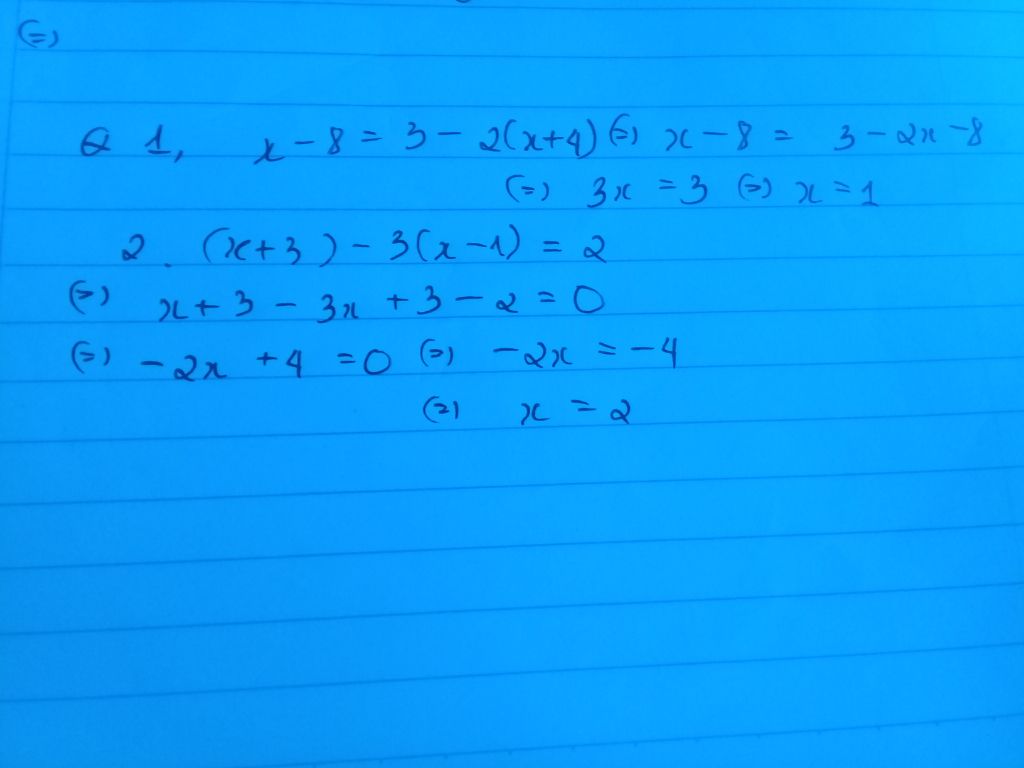 (=)
Q 1, x - 8 = 3 - 2(x+4) (=) x - 8 = 3 - 2x - 8
(=) 3x = 3 (=) x = 1
2. (x+3) - 3(x-1) = 2
(=) x + 3 - 3x + 3 - 2 = 0
(=) -2x + 4 = 0 (=) -2x = -4
(=) x = 2